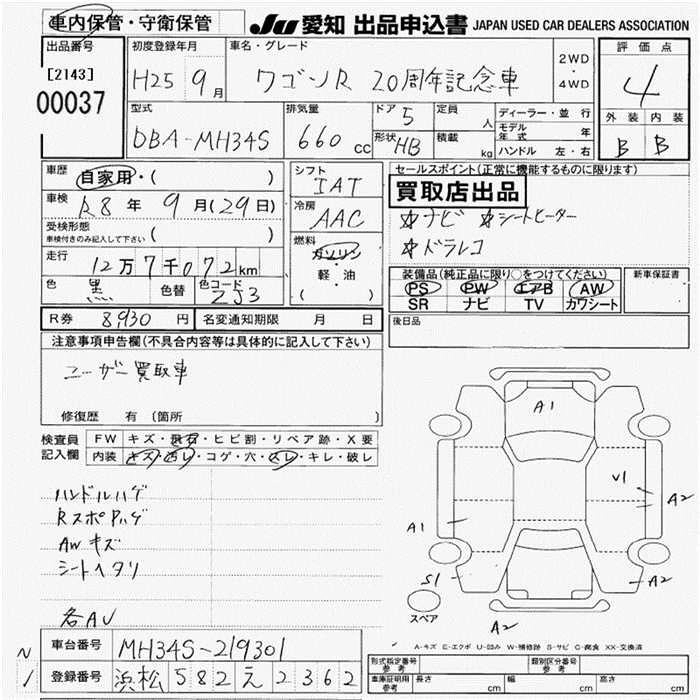 車内保管・守衛保管
JU 愛知 出品申込書 JAPAN USED CAR DEALERS ASSOCIATION
出品番号
[2143]
00037
初度登録年月
H25 9月
車名・グレード
ワゴンR 20周年記念車
2WD・4WD
評価点
4
外装 内装
B B
型式
DBA-MH34S
排気量
660 cc
ドア 5
形状 HB
定員 人
積載 kg
ディーラー・並行
モデル年式 年
ハンドル 左・右
車歴
自家用・( )
車検 R8年 9月(29日)
受検形態
車検付きのみ記入して下さい ( )
走行
12万7千072km
色 黒 色替 色コード ZJ3
シフト
IAT
冷房
AAC
燃料
ガソリン・軽・油
( )
セールスポイント(正常に機能するものに限ります)
買取店出品
☆ナビ ☆シートヒーター
☆ドラレコ
装備品(純正品に限り○をつけてください)
PS PW エアB AW
SR ナビ TV カワシート
新車保証書
後日品
R券 8,930円 名変通知期限 月 日
注意事項申告欄(不具合内容等は具体的に記入して下さい)
ユーザー買取車
修復歴 有 (箇所 )
検査員記入欄
FW キズ・飛石・ヒビ割・リペア跡・X要
内装 キズ・汚レ・コゲ・穴・スレ・キレ・破レ
ハンドルハゲ
RスポPハゲ
AWキズ
シートヘタリ
各AU
A1
V1
A2
A1
S1
A2
A2
スペア
A-キズ E-エクボ U-凹み W-補修跡 S-サビ C-腐食 XX-交換済
車台番号 MH34S-219301
登録番号 浜松 582 え 2362
N/1
形式指定番号 参考
類別区分番号 参考
車庫証明用 参考 長さ cm 幅 cm 高さ cm